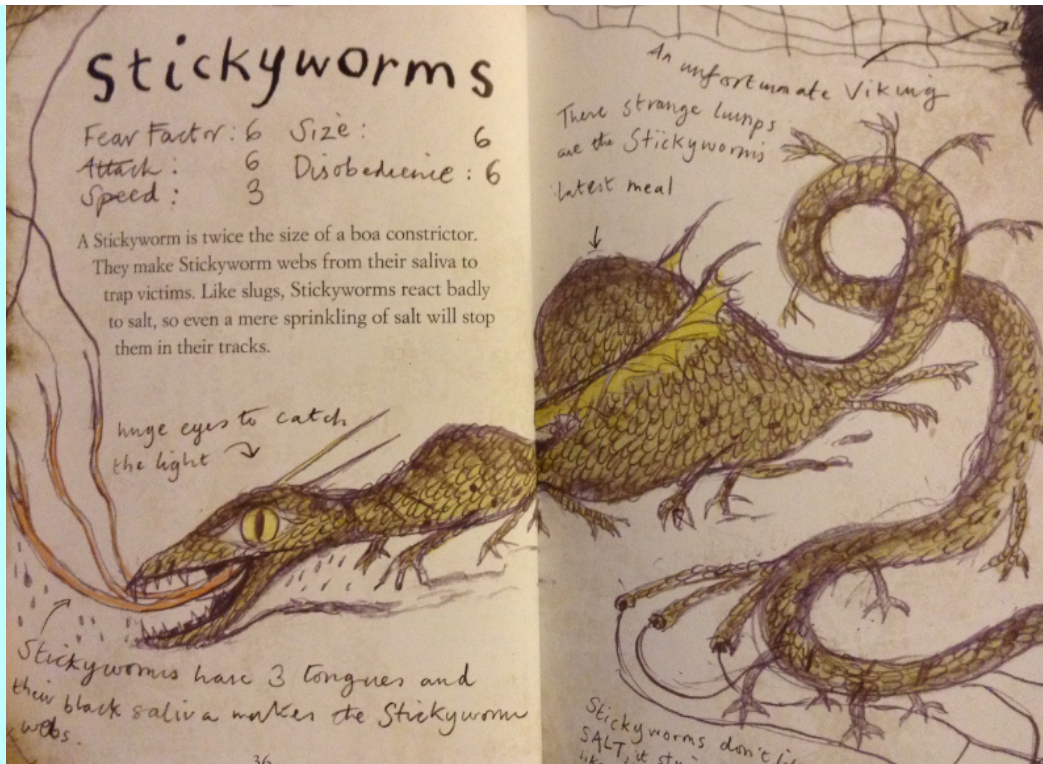 Stickyworms
Fear Factor: 6 Size: 6
Attack: 6 Disobedience: 6
Speed: 3
A Stickyworm is twice the size of a boa constrictor.
They make Stickyworm webs from their saliva to
trap victims. Like slugs, Stickyworms react badly
to salt, so even a mere sprinkling of salt will stop
them in their tracks.
huge eyes to catch
the light
Stickyworms have 3 tongues and
their black saliva makes the Stickyworm
webs.
36
An unfortunate Viking
These strange lumps
are the Stickyworms
latest meal
Stickyworms don't
SALT, it